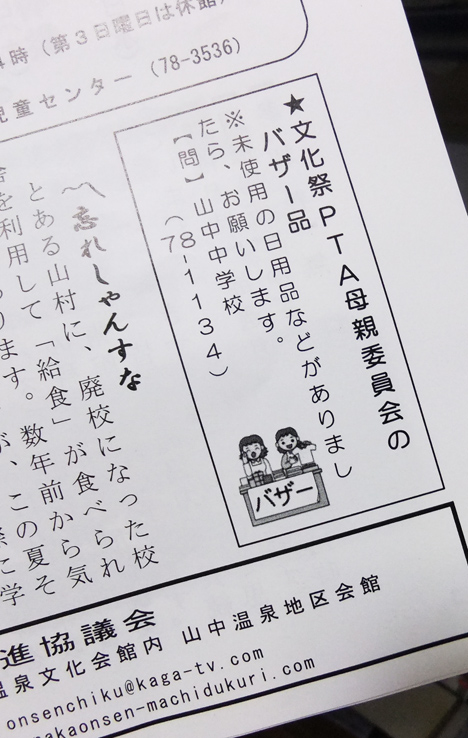 4時(第3日曜日は休館)
児童センター (78-3536)
★文化祭PTA母親委員会の
バザー品
※未使用の日用品などがありまし
たら、お願いします。
【問】山中中学校
(78-1134)
バザー
忘れしゃんすな
とある山村に、廃校になった校
舎を利用して「給食」が食べられ
ります。数年前から気
が、この夏そ
進協議会
温泉文化会館内 山中温泉地区会館
onsenchiku@kaga-tv.com
nakaonsen-machidukuri.com